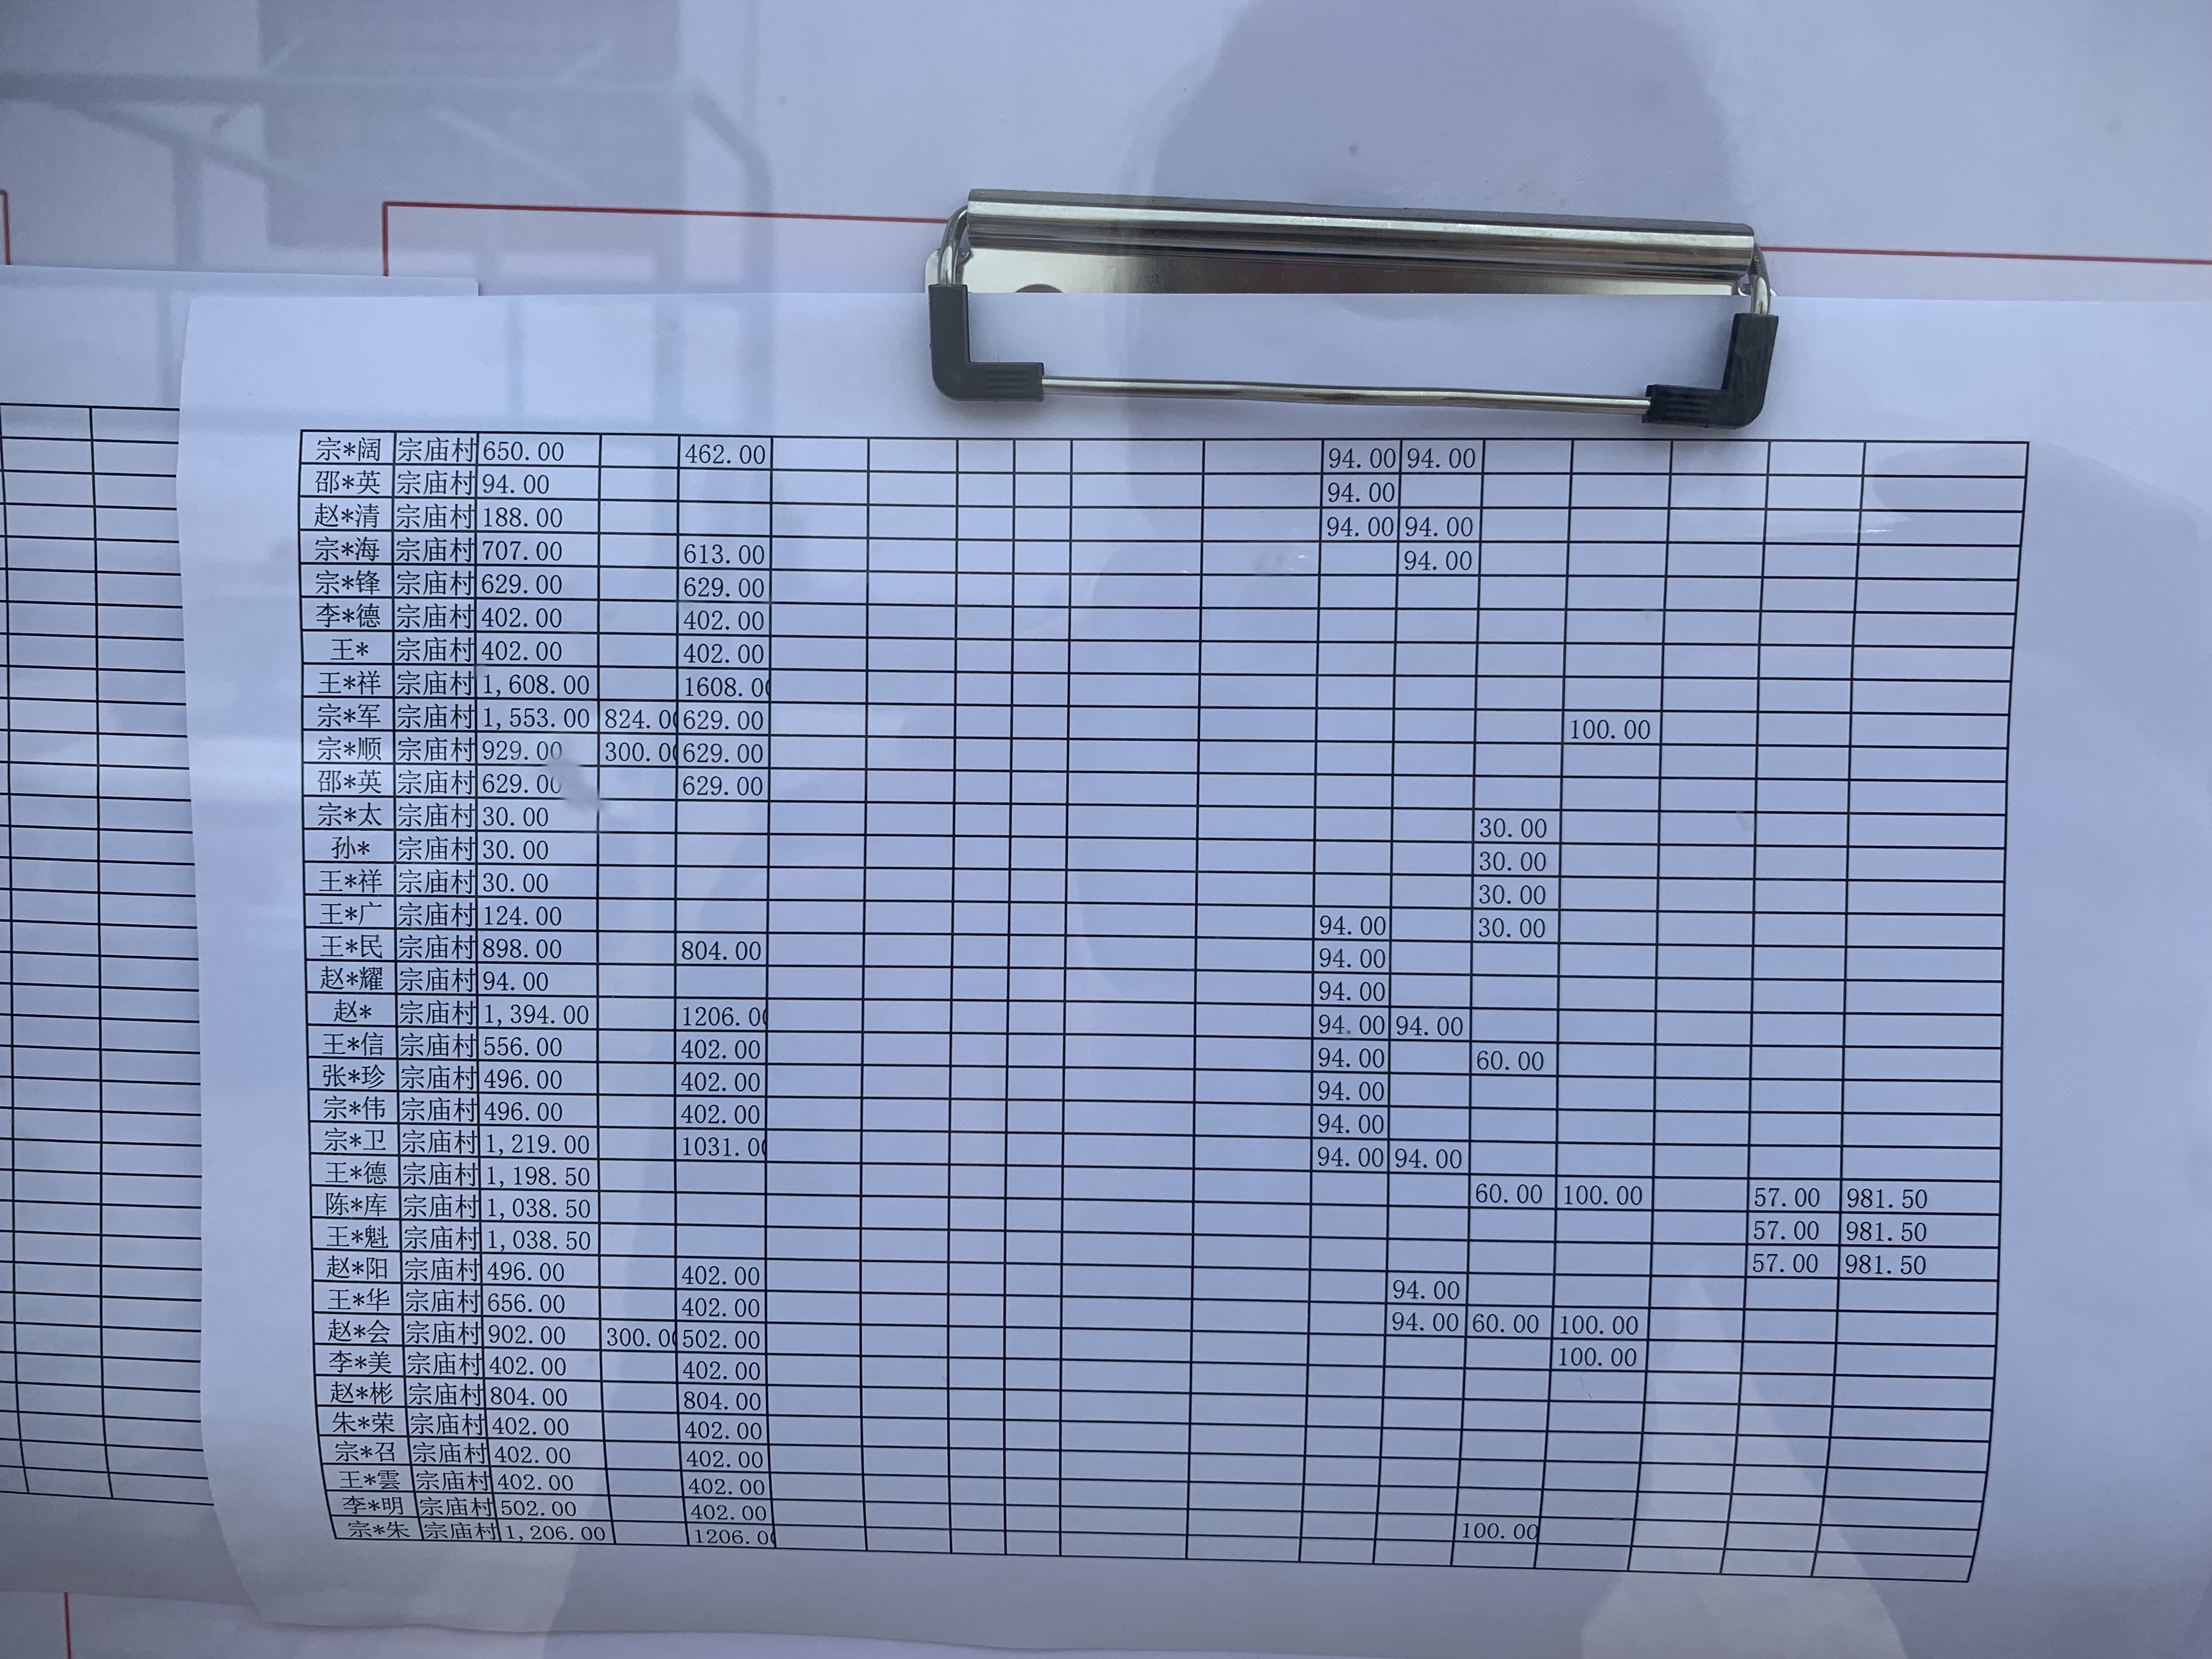 宗*阔 宗庙村 650.00 462.00 94.00 94.00
邵*英 宗庙村 94.00 94.00
赵*清 宗庙村 188.00 94.00 94.00
宗*海 宗庙村 707.00 613.00 94.00
宗*锋 宗庙村 629.00 629.00
李*德 宗庙村 402.00 402.00
王* 宗庙村 402.00 402.00
王*祥 宗庙村 1,608.00 1608.00
宗*军 宗庙村 1,553.00 824.00 629.00 100.00
宗*顺 宗庙村 929.00 300.00 629.00
邵*英 宗庙村 629.00 629.00
宗*太 宗庙村 30.00 30.00
孙* 宗庙村 30.00 30.00
王*祥 宗庙村 30.00 30.00
王*广 宗庙村 124.00 94.00 30.00
王*民 宗庙村 898.00 804.00 94.00
赵*耀 宗庙村 94.00 94.00
赵* 宗庙村 1,394.00 1206.00 94.00 94.00
王*信 宗庙村 556.00 402.00 94.00 60.00
张*珍 宗庙村 496.00 402.00 94.00
宗*伟 宗庙村 496.00 402.00 94.00
宗*卫 宗庙村 1,219.00 1031.00 94.00 94.00
王*德 宗庙村 1,198.50 60.00 100.00 57.00 981.50
陈*库 宗庙村 1,038.50 57.00 981.50
王*魁 宗庙村 1,038.50 57.00 981.50
赵*阳 宗庙村 496.00 402.00 94.00
王*华 宗庙村 656.00 402.00 94.00 60.00 100.00
赵*会 宗庙村 902.00 300.00 502.00 100.00
李*美 宗庙村 402.00 402.00
赵*彬 宗庙村 804.00 804.00
朱*荣 宗庙村 402.00 402.00
宗*召 宗庙村 402.00 402.00
王*雲 宗庙村 402.00 402.00
李*明 宗庙村 502.00 402.00 100.00
宗*朱 宗庙村 1,206.00 1206.00